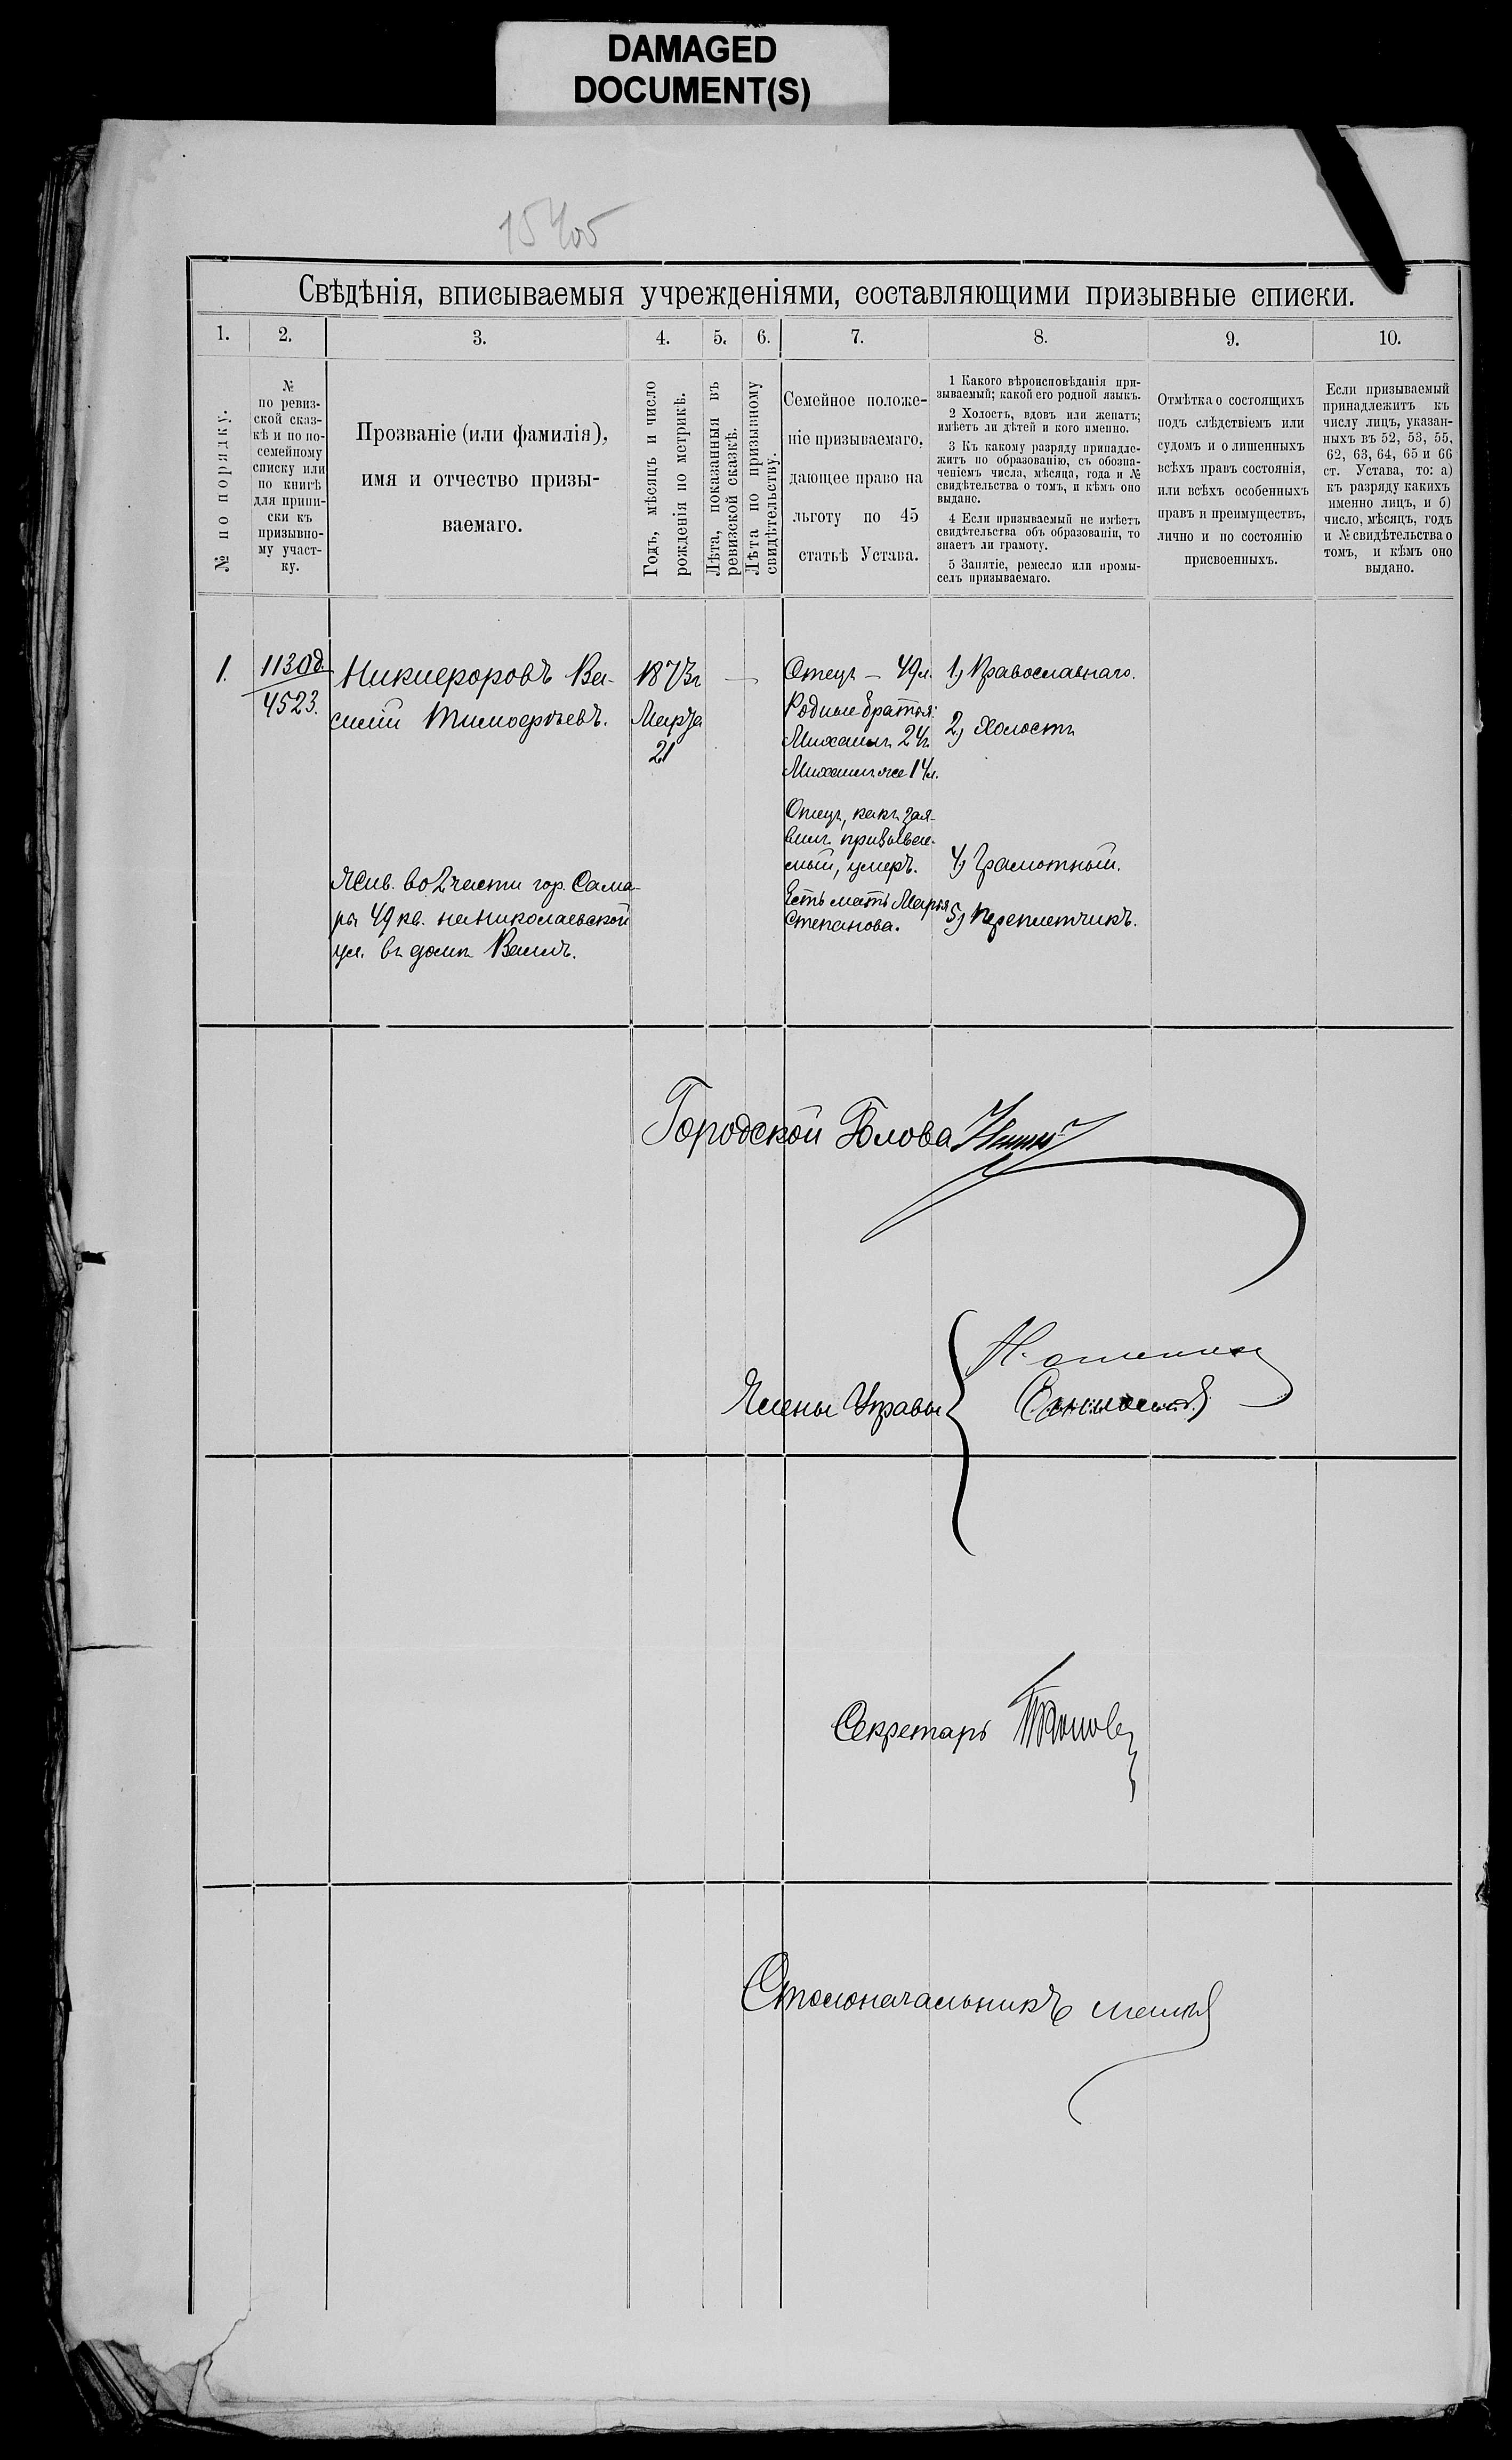 DAMAGED
DOCUMENT(S)
Свѣдѣнія, вписываемыя учрежденіями, составляющими призывные списки.
1.
2.
3.
4.
5.
6.
7.
8.
9.
10.
№ по порядку.
№
по ревиз-
ской сказ-
кѣ и по по-
семейному
списку или
по книгѣ
для припи-
ски къ
призывно-
му участ-
ку.
Прозваніе (или фамилія),
имя и отчество призы-
ваемаго.
Годъ, мѣсяцъ и число
рожденія по метрикѣ.
Лѣта, показанныя въ
ревизской сказкѣ.
Лѣта по призывному
свидѣтельству.
Семейное положе-
ніе призываемаго,
дающее право на
льготу по 45
статьѣ Устава.
1 Какого вѣроисповѣданія при-
зываемый; какой его родной языкъ.
2 Холостъ, вдовъ или женатъ;
имѣетъ ли дѣтей и кого именно.
3 Къ какому разряду принадле-
житъ по образованію, съ обозна-
ченіемъ числа, мѣсяца, года и №
свидѣтельства о томъ, и кѣмъ оно
выдано.
4 Если призываемый не имѣетъ
свидѣтельства объ образованіи, то
знаетъ ли грамоту.
5 Занятіе, ремесло или промы-
селъ призываемаго.
Отмѣтка о состоящихъ
подъ слѣдствіемъ или
судомъ и о лишенныхъ
всѣхъ правъ состоянія,
или всѣхъ особенныхъ
правъ и преимуществъ,
лично и по состоянію
присвоенныхъ.
Если призываемый
принадлежитъ къ
числу лицъ, указан-
ныхъ въ 52, 53, 55,
62, 63, 64, 65 и 66
ст. Устава, то: а)
къ разряду какихъ
именно лицъ, и б)
число, мѣсяцъ, годъ
и № свидѣтельства о
томъ, и кѣмъ оно
выдано.
1.
1130д.
4523.
Никифоровъ Ва-
силій Тимофѣевъ.
Жив. во 2 части гор. Сама-
ры 49 кв. на Николаевской
ул. въ домѣ
1873г
Марта
21
—
Отецъ – 49л.
Родные братья:
Михаилъ 24г.
Михаилъ же 14л.
Отецъ, какъ зая-
вилъ призывае-
мый, умеръ.
Есть мать Марья
Степанова.
1) Православнаго.
2) Холостъ
4) Грамотный.
5) Переплетчикъ.
Городской Голова
Члены Управы
Секретарь
Столоначальникъ